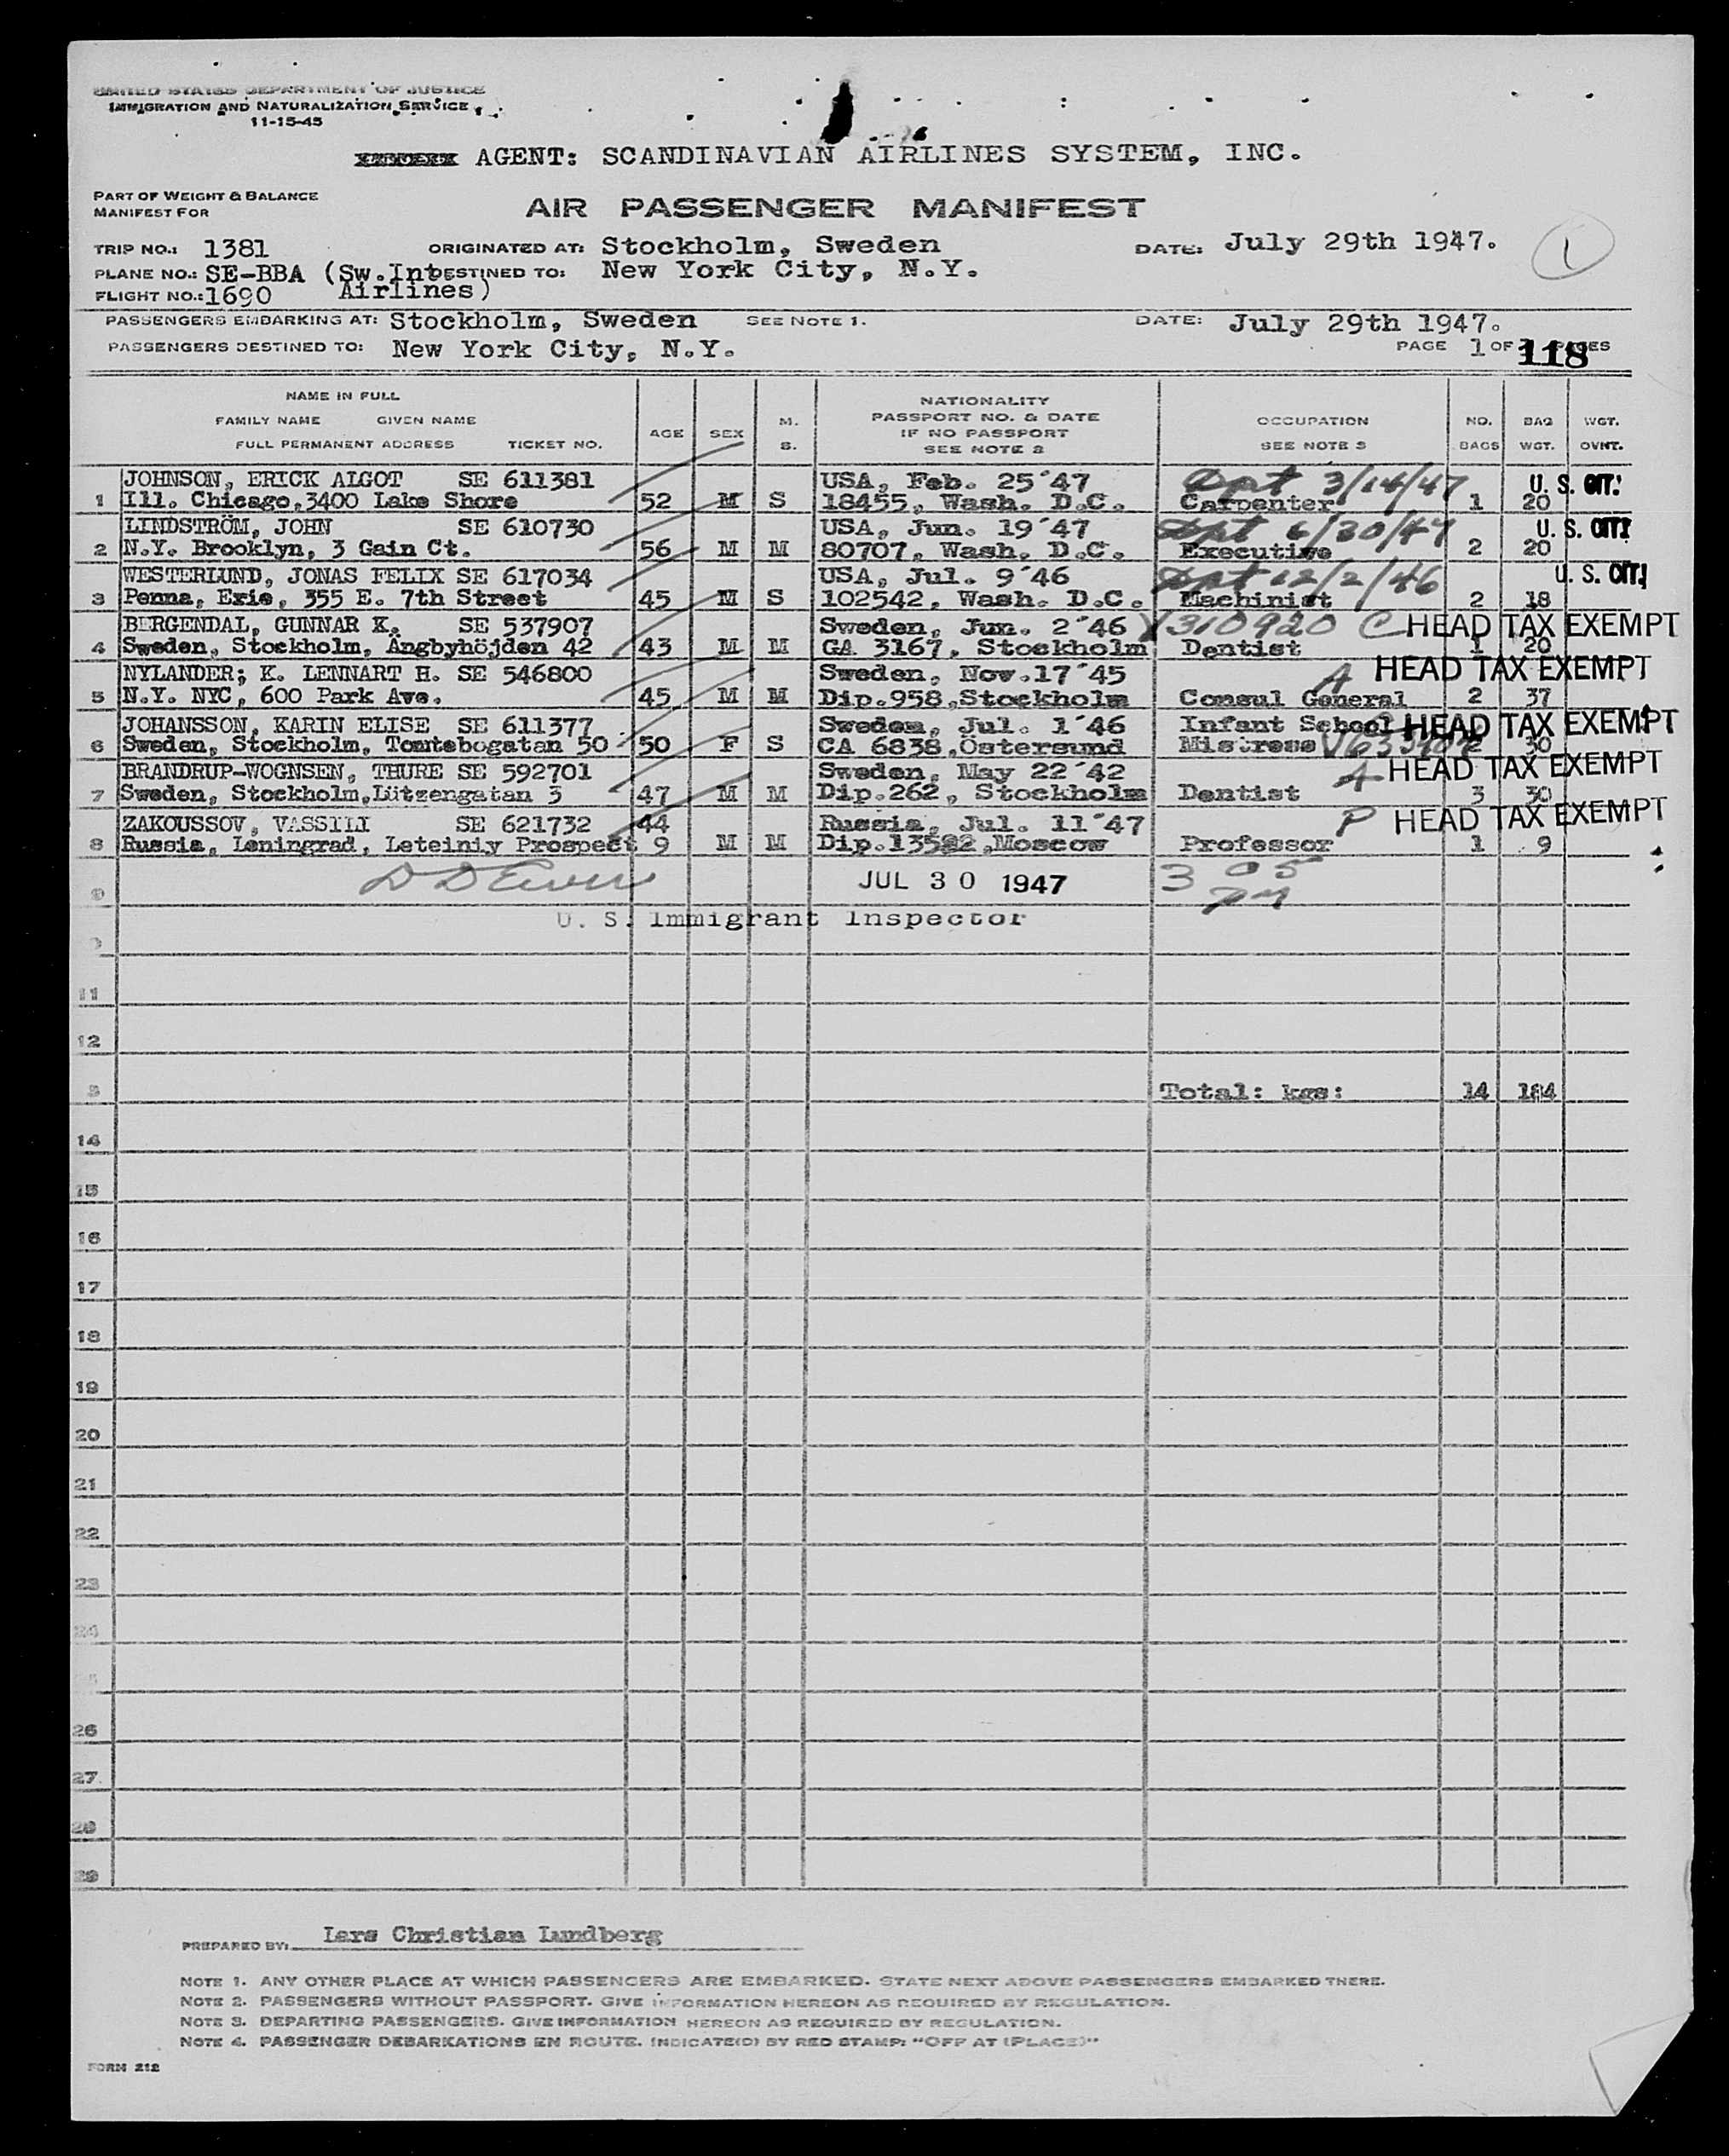 UNITED STATES DEPARTMENT OF JUSTICE
IMMIGRATION AND NATURALIZATION SERVICE
11-15-45
AGENT: SCANDINAVIAN AIRLINES SYSTEM, INC.
PART OF WEIGHT & BALANCE
MANIFEST FOR
AIR PASSENGER MANIFEST
TRIP NO.: 1381 ORIGINATED AT: Stockholm, Sweden DATE: July 29th 1947. 1
PLANE NO.: SE-BBA (Sw.Int DESTINED TO: New York City, N.Y.
FLIGHT NO.: 1690 Airlines)
PASSENGERS EMBARKING AT: Stockholm, Sweden SEE NOTE 1. DATE: July 29th 1947.
PASSENGERS DESTINED TO: New York City, N.Y. PAGE 1 OF PAGES 118
NAME IN FULL
FAMILY NAME GIVEN NAME
FULL PERMANENT ADDRESS TICKET NO. AGE SEX M. S. NATIONALITY PASSPORT NO. & DATE IF NO PASSPORT SEE NOTE 2 OCCUPATION SEE NOTE 3 NO. BAGS BAG WGT. WGT. OVNT.
JOHNSON, ERICK ALGOT SE 611381 USA, Feb. 25'47 Dpt 3/14/47 U. S. CIT.
1 Ill. Chicago,3400 Lake Shore 52 M S 18455, Wash. D.C. Carpenter 1 20
LINDSTRÖM, JOHN SE 610730 USA, Jun. 19'47 Dpt 6/30/47 U. S. CIT.
2 N.Y. Brooklyn, 3 Gain Ct. 56 M M 80707, Wash. D.C. Executive 2 20
WESTERLUND, JONAS FELIX SE 617034 USA, Jul. 9'46 Dpt 12/2/46 U. S. CIT.
3 Penna, Erie, 355 E. 7th Street 45 M S 102542, Wash. D.C. Machinist 2 18
BERGENDAL, GUNNAR K. SE 537907 Sweden, Jun. 2'46 V310920 C HEAD TAX EXEMPT
4 Sweden, Stockholm, Ängbyhöjden 42 43 M M GA 3167, Stockholm Dentist 1 20
NYLANDER; K. LENNART H. SE 546800 Sweden, Nov.17'45 A HEAD TAX EXEMPT
5 N.Y. NYC, 600 Park Ave. 45 M M Dip.958,Stockholm Consul General 2 37
JOHANSSON, KARIN ELISE SE 611377 Sweden, Jul. 1'46 Infant School HEAD TAX EXEMPT
6 Sweden, Stockholm, Tomtebogatan 50 50 F S CA 6838,Östersund Mistress 2 30
BRANDRUP-WOGNSEN, THURE SE 592701 Sweden, May 22'42 A HEAD TAX EXEMPT
7 Sweden, Stockholm,Lützengatan 3 47 M M Dip.262, Stockholm Dentist 3 30
ZAKOUSSOV, VASSILI SE 621732 44 Russia, Jul. 11'47 P HEAD TAX EXEMPT
8 Russia, Leningrad, Leteiniy Prospect 9 M M Dip.13582,Moscow Professor 1 9
9 JUL 30 1947 3 05
U. S. Immigrant Inspector
11
12
Total: kgs: 14 184
14
15
16
17
18
19
20
21
22
23
24
26
27
28
29
PREPARED BY: Lars Christian Lundberg
NOTE 1. ANY OTHER PLACE AT WHICH PASSENGERS ARE EMBARKED. STATE NEXT ABOVE PASSENGERS EMBARKED THERE.
NOTE 2. PASSENGERS WITHOUT PASSPORT. GIVE INFORMATION HEREON AS REQUIRED BY REGULATION.
NOTE 3. DEPARTING PASSENGERS. GIVE INFORMATION HEREON AS REQUIRED BY REGULATION.
NOTE 4. PASSENGER DEBARKATIONS EN ROUTE. INDICATE(D) BY RED STAMP: "OFF AT (PLACE)"
FORM 212